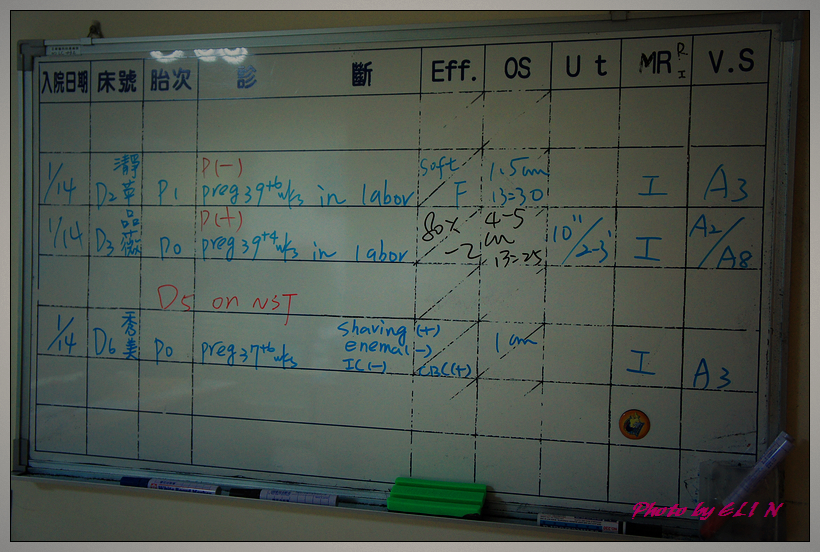 入院日期 床號 胎次 診 斷 Eff. OS U t MR R I V.S
1/14 D2 靜華 P1 P(-) preg 39+6 wks in labor soft F 1.5cm 13:30 I A3
1/14 D3 品薇 P0 P(+) preg 39+4 wks in labor 80% -2 4-5 cm 13:25 10"/2-3' I A2/A8
D5 on NST
1/14 D6 秀美 P0 preg 37+6 wks shaving (+) enema(-) IC(-) CBC(+) 1 cm I A3
Photo by ELI N